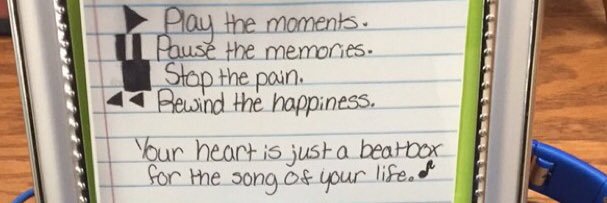 Play the moments.
Pause the memories.
Stop the pain.
Rewind the happiness.
Your heart is just a beatbox
for the song of your life.